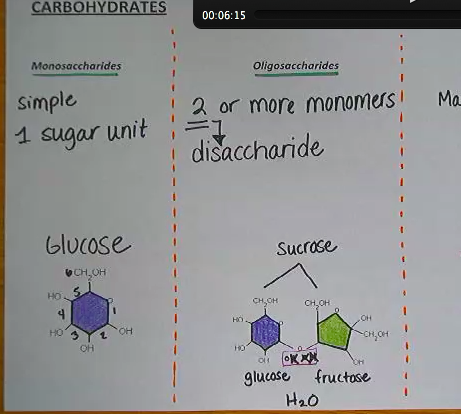 CARBOHYDRATES
00:06:15
Monosaccharides
simple
1 sugar unit
Glucose
6 CH₂OH
5
O
HO
4
1
HO
3
2
OH
OH
Oligosaccharides
2 or more monomers
disaccharide
sucrose
CH₂OH
CH₂OH
HO
O
O
OH
CH₂OH
HO
OH
O
OH
glucose fructose
H₂O
Ma